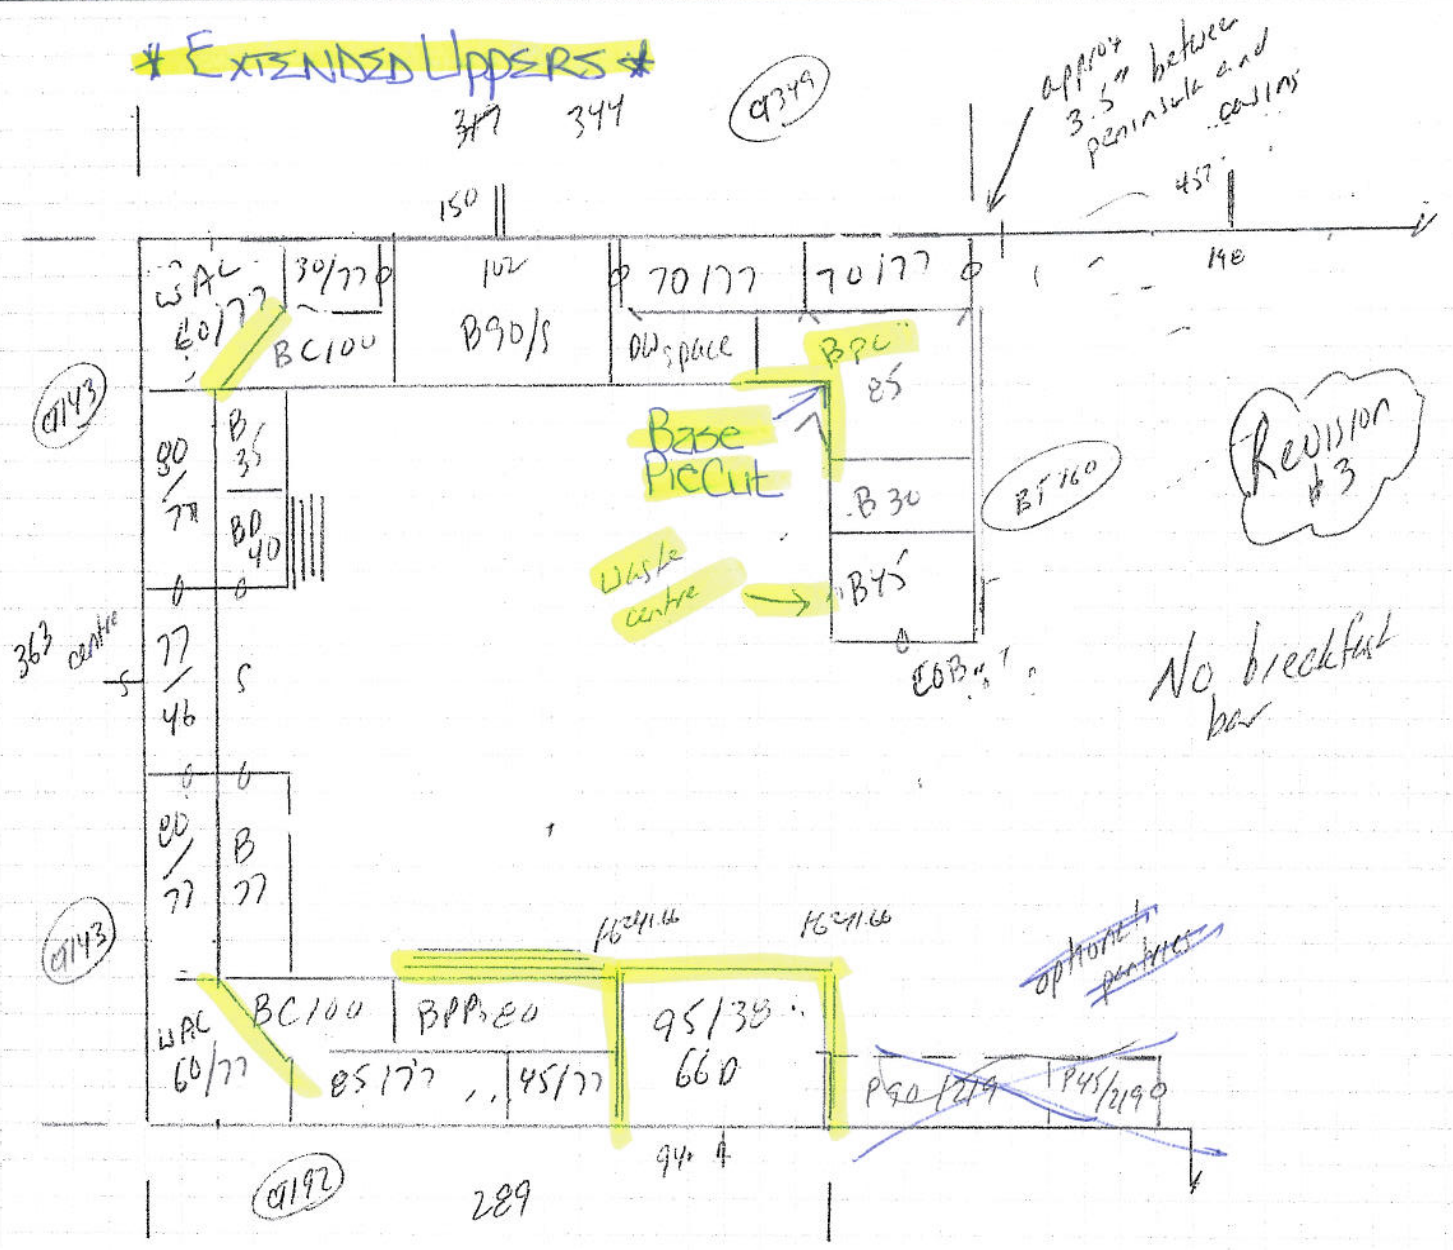 * EXTENDED UPPERS *
344
CT349
approx
3.5" between
peninsula and
casing
150
457
198
WAC
60/77
30/77
BC100
102
B90/S
70/77
70/77
DW space
BPC
85
CT143
80
/
77
B
35
BD
40
Base
PieCut
B30
BT160
Revision
#3
Waste
centre
B45
363 centre
77
/
46
S
S
EOB
No breakfast
bar
80
/
77
B
77
CT143
optional
pantries
WAC
60/77
BC100
BPPS80
85/77
45/77
95/38
66D
P90/219
P45/219
94
CT192
289